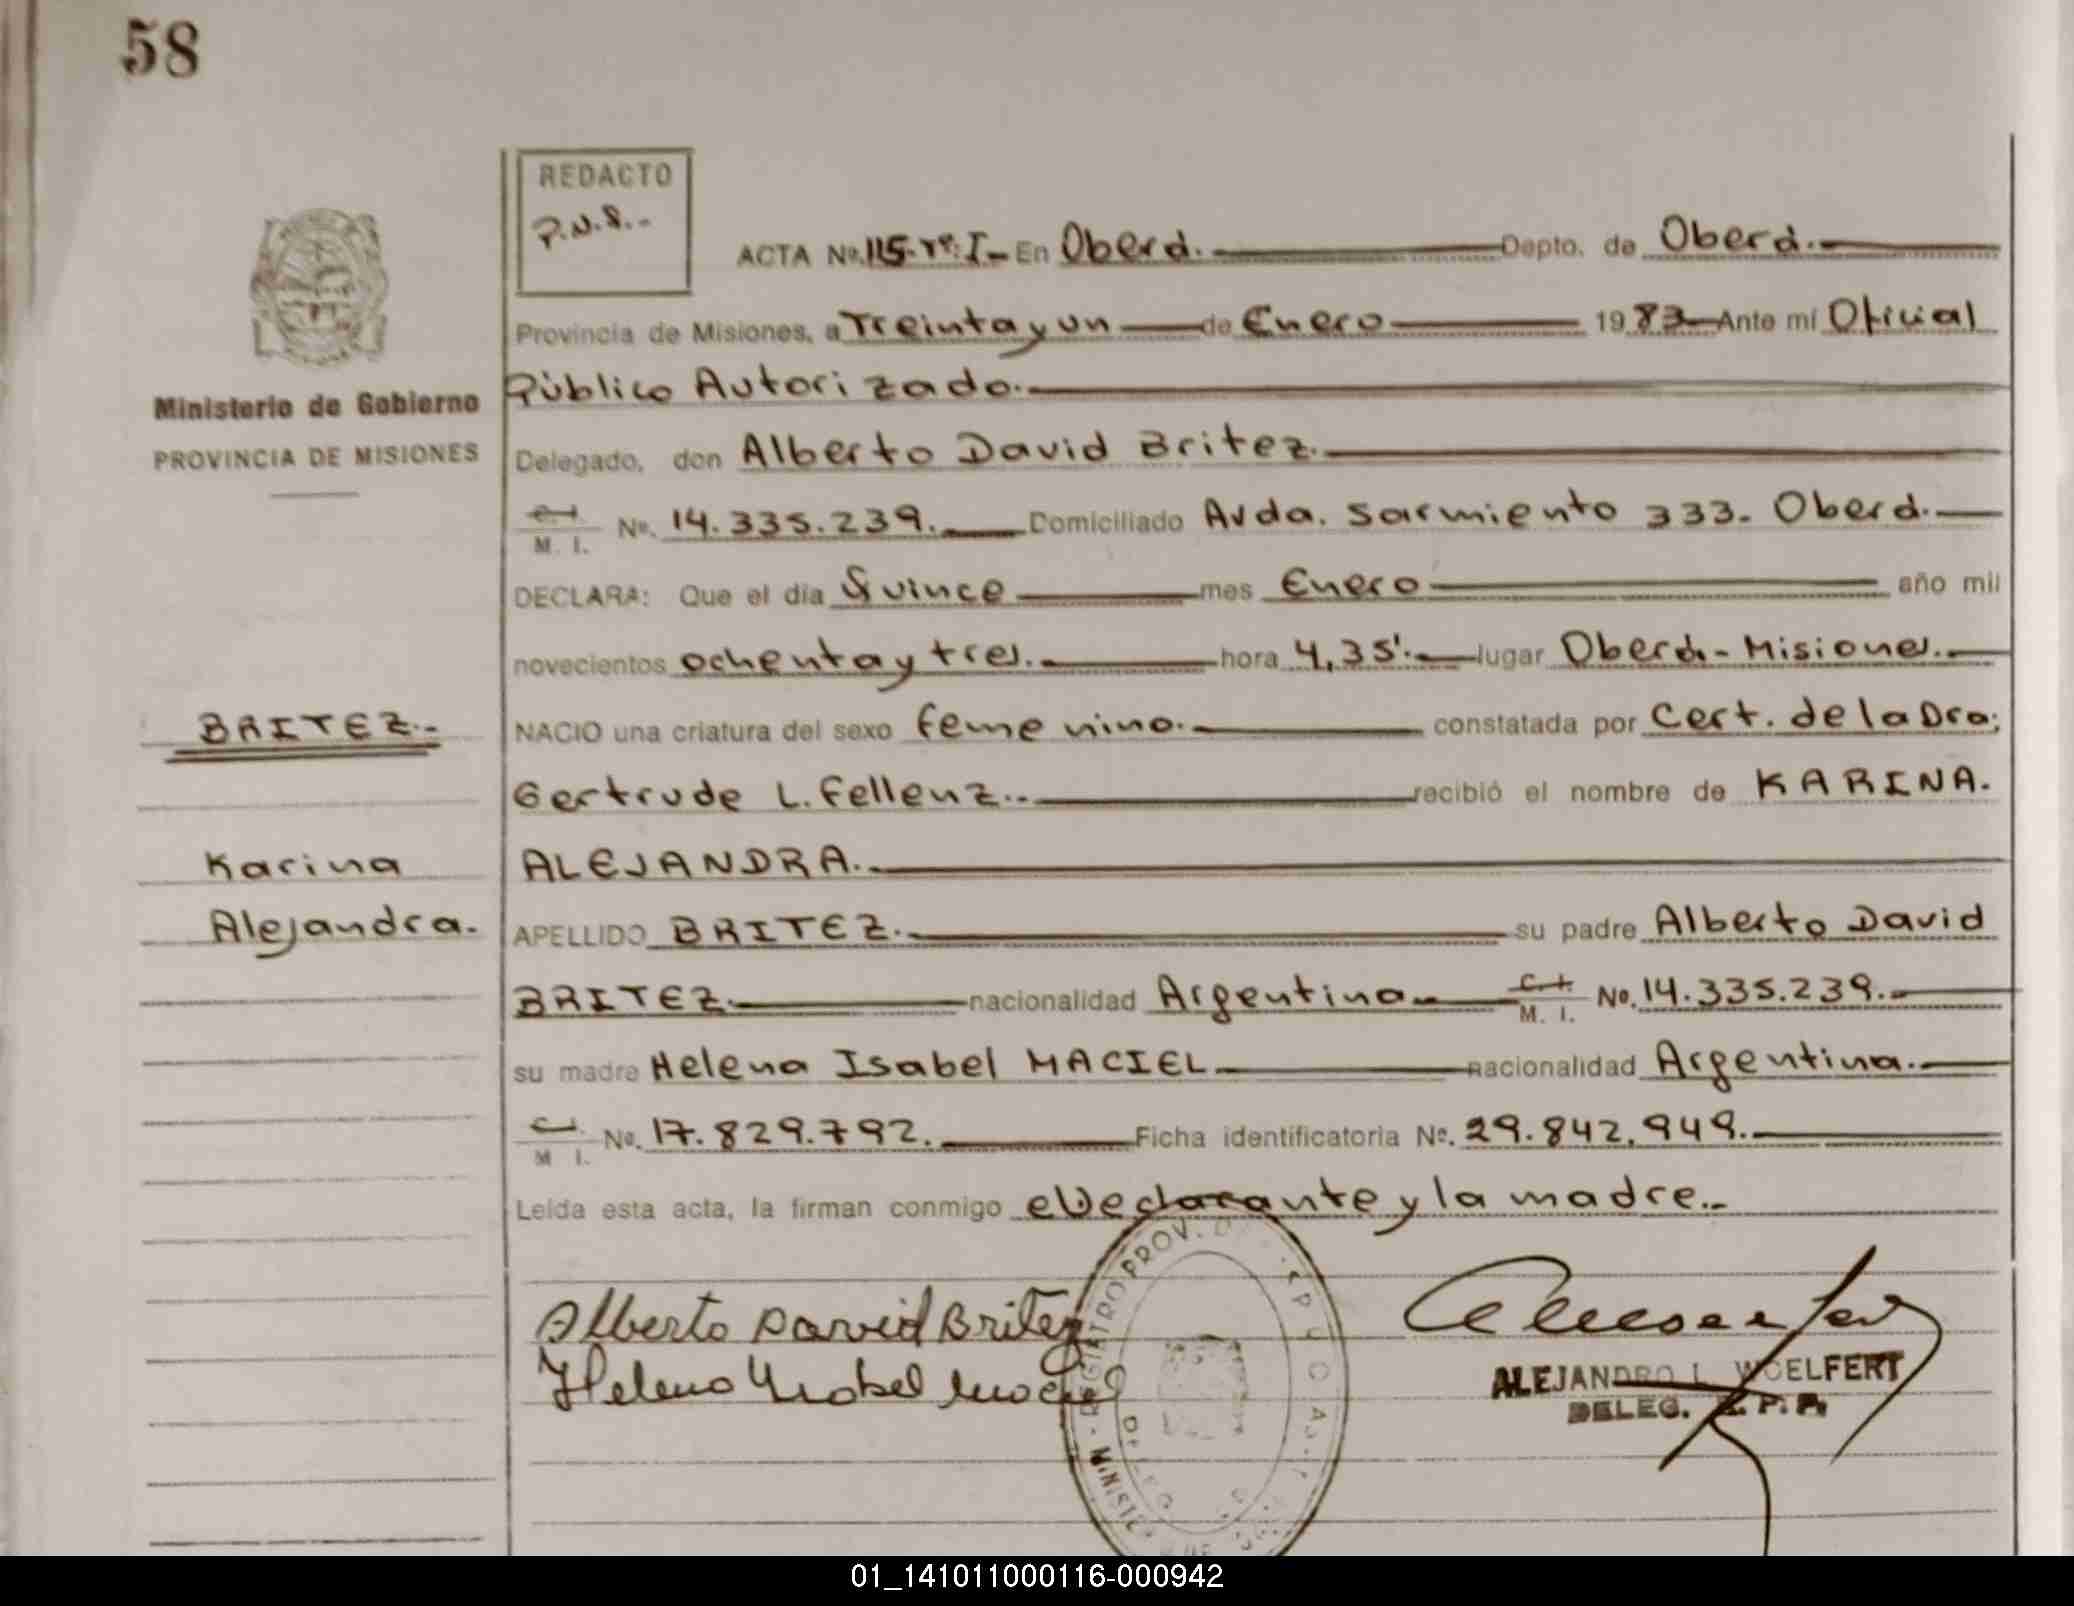 58
REDACTO
P.N.S.-
ACTA Nº. 115. Tº: I- En Oberá. Depto. de Oberá.
Provincia de Misiones, a Treinta y un de Enero 1983 Ante mí Oficial
Público Autorizado.
Ministerio de Gobierno
PROVINCIA DE MISIONES
Delegado, don Alberto David Britez.
C.I. M. I. Nº. 14.335.239. Domiciliado Avda. Sarmiento 333. Oberá.
DECLARA: Que el día Quince mes Enero año mil
novecientos ochenta y tres. hora 4,35'. lugar Oberá-Misiones.
BRITEZ.-
NACIO una criatura del sexo femenino. constatada por Cert. de la Dra;
Gertrude L. Fellenz.- recibió el nombre de KARINA.
Karina
ALEJANDRA.
Alejandra.
APELLIDO BRITEZ. su padre Alberto David
BRITEZ. nacionalidad Argentina C.I. M. I. Nº. 14.335.239.
su madre Helena Isabel MACIEL nacionalidad Argentina.
C.I. M. I. Nº. 17.829.792. Ficha identificatoria Nº. 29.842.949.
Leída esta acta, la firman conmigo el Declarante y la madre.-
Alberto David Britez
Helena Isabel Maciel
REGISTRO PROV. D
MINISTE
DELEG
ALEJANDRO L. WOELFERT
DELEG. R. P. P.
01_141011000116-000942